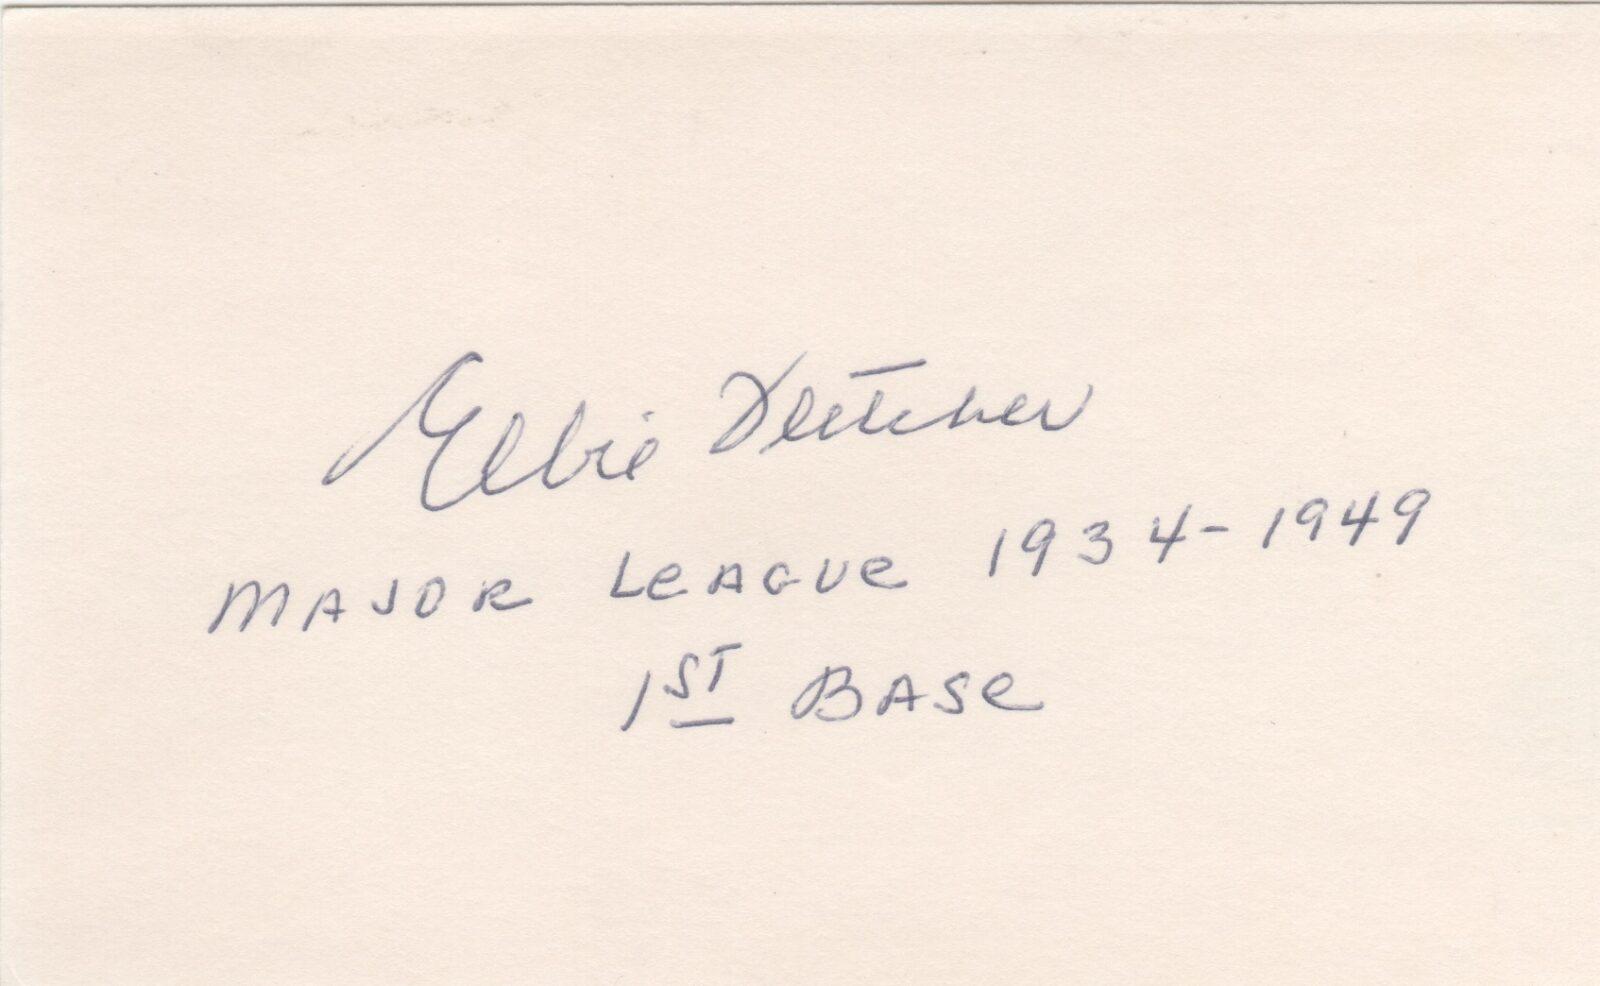 Elbie Fletcher
MAJOR LeAGUe 1934-1949
1ST BASe